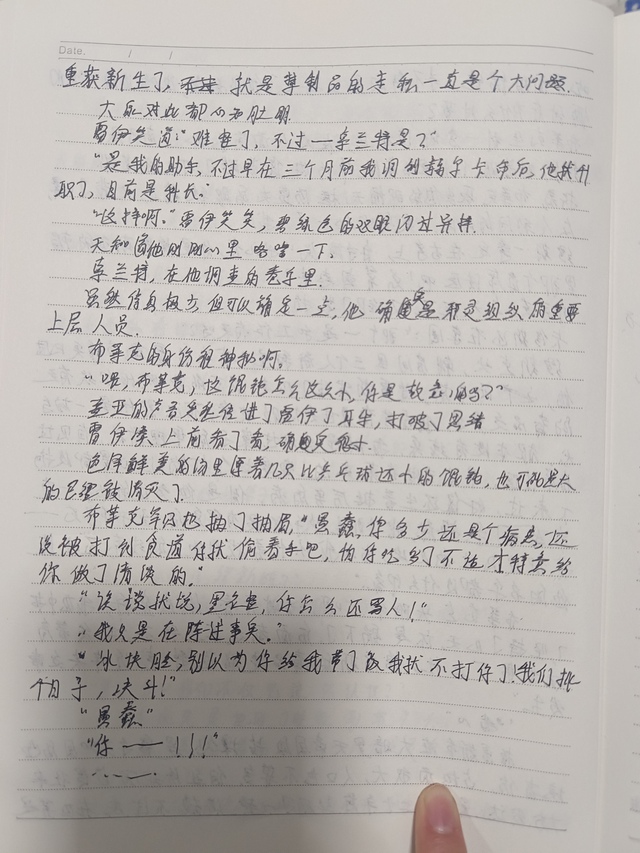 Date. / /
重获新生了, 就是草制品的走私一直是个大问题.
大家对此都心知肚明
雷伊笑道:"难查了, 不过——桌兰特是?"
"是我的助手, 不过早在三个月前我调到赫尔卡争后, 他就升
职了, 目前是科长."
"这样啊." 雷伊笑笑, 碧绿色的双眼闪过异样.
天知道他刚刚心里咯噔一下.
卓兰特, 在他调查的卷宗里.
虽然信息极少, 但可以确定一点, 他确是邪灵组织的重要
上层人员.
布莱克的身份很神秘啊.
"喂, 布莱克, 这馄饨怎么这么小, 你是故意的吗?"
盖亚的声音突然传进了雷伊了耳朵, 打破了思绪
雷伊凑上前看了看, 确实是很小.
色泽鲜美的汤里浮着几只比乒乓球还小的馄饨, 也可能是大
的已经被消灭了
布莱克气的抽了抽眉, "愚蠢, 你多少还是个病患, 还
没被打到食道你就偷着乐吧, 怕你吃多了不适才特意给
你做了清淡的."
"说谈就说, 里名查, 你怎么还骂人!"
"我只是在陈述事实."
"冰块脸, 别以为你给我带了饭我就不打你了! 我们挑
个日子, 决斗!"
"愚蠢"
"你——!!!"
……